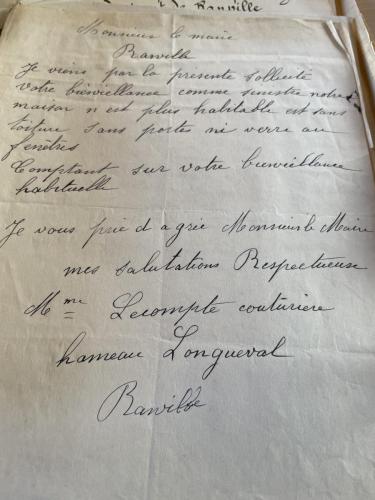 de Ranville
Monsieur le maire
Ranville
Je viens par la presente sollicité
votre bienveillance comme sinestre notre
maison n est plus habitable est sans
toiture sans portes ni verre au
fenêtres
Comptant sur votre bienveillance
habituelle
Je vous prie d agrée Monsieur le Maire
mes salutations Respectueuse
Mme Lecompte couturiere
hameau Longueval
Ranville